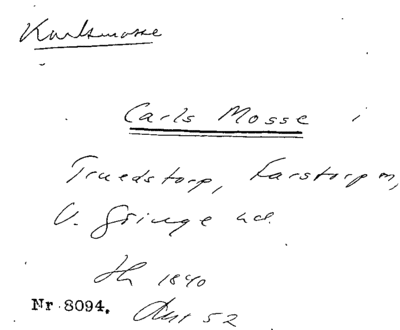 Karlsmosse
Carls Mosse i
Truedstorp, Farstorp m,
V. Göinge hd.
Jh 1840
Nr 8094. Akt 52